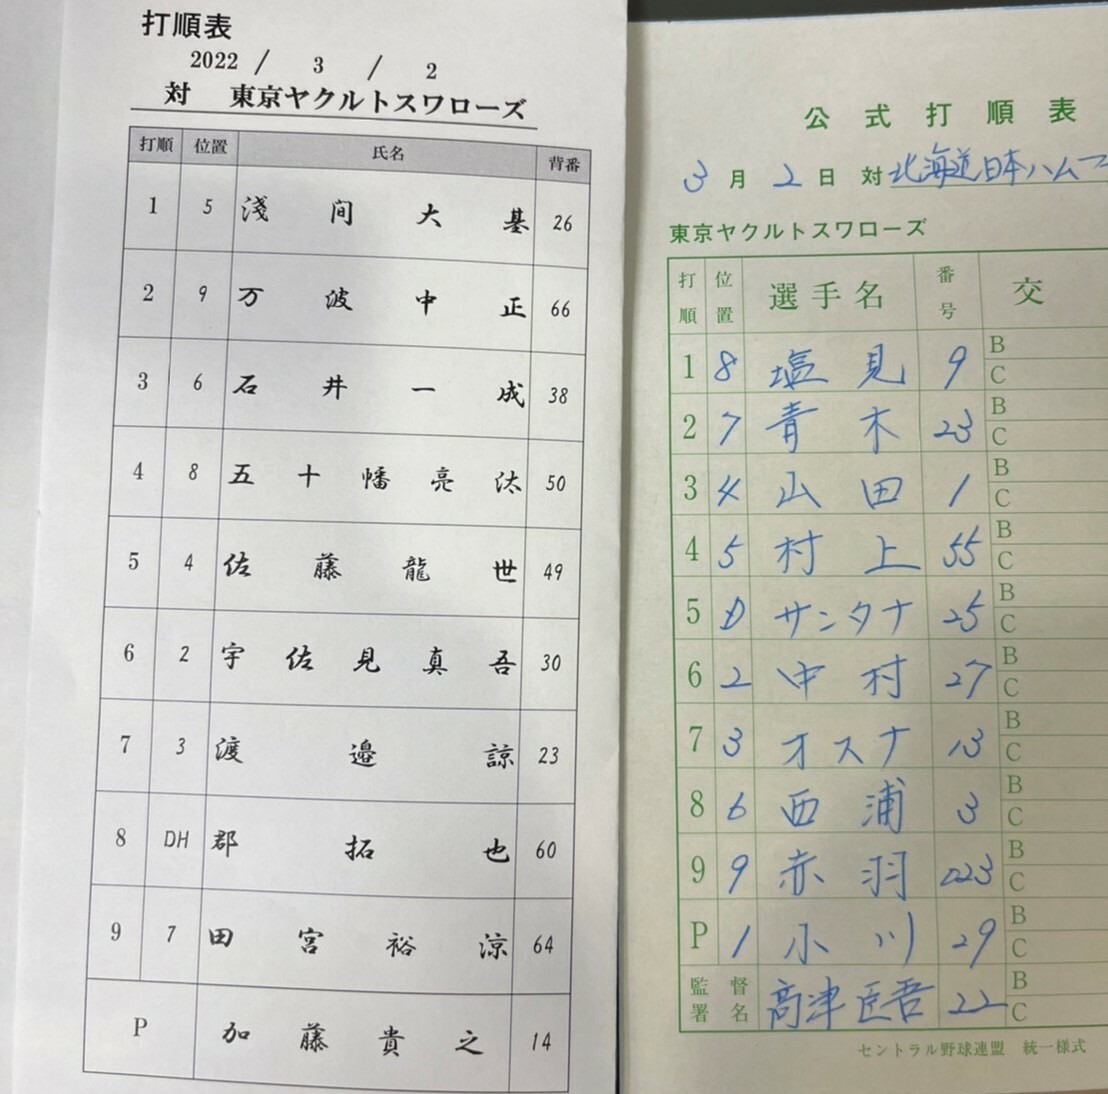 打順表
2022 / 3 / 2
対 東京ヤクルトスワローズ
打順 位置 氏名 背番
1 5 淺間大基 26
2 9 万波中正 66
3 6 石井一成 38
4 8 五十幡亮汰 50
5 4 佐藤龍世 49
6 2 宇佐見真吾 30
7 3 渡邉諒 23
8 DH 郡拓也 60
9 7 田宮裕涼 64
P 加藤貴之 14
公式打順表
3月2日 対 北海道日本ハム
東京ヤクルトスワローズ
打順 位置 選手名 番号 交
1 8 塩見 9 B C
2 7 青木 23 B C
3 4 山田 1 B C
4 5 村上 55 B C
5 D サンタナ 25 B C
6 2 中村 27 B C
7 3 オスナ 13 B C
8 6 西浦 3 B C
9 9 赤羽 023 B C
P 1 小川 29 B C
監督署名 高津臣吾 22 B C
セントラル野球連盟 統一様式